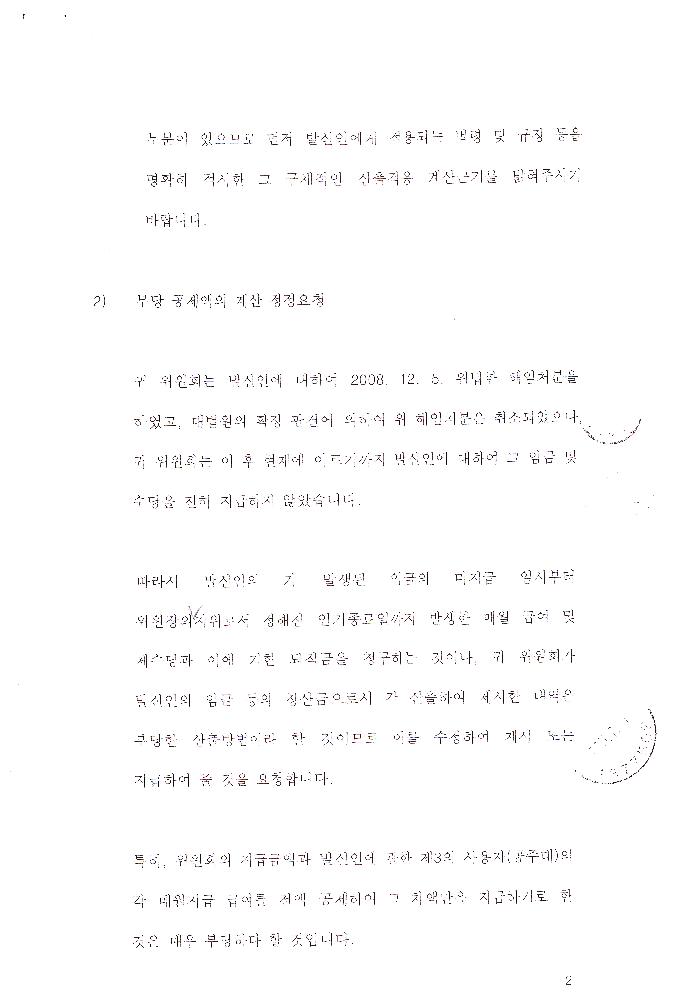 부분이 있으므로 먼저 발신인에게 적용되는 법령 및 규정 등을
명확히 적시한 그 구체적인 산출적용 계산근거를 밝혀주시기
바랍니다.
2) 부당 공제액의 계산 정정요청
귀 위원회는 발신인에 대하여 2008. 12. 5. 위법한 해임처분을
하였고, 대법원의 확정 판결에 의하여 위 해임처분은 취소되었으나,
귀 위원회는 이 후 현재에 이르기까지 발신인에 대하여 그 임금 및
수당을 전혀 지급하지 않았습니다.
따라서 발신인의 기 발생된 임금의 미지급 일시부터
위원장의 지위로서 정해진 임기종료일까지 발생한 매월 급여 및
제수당과 이에 기한 퇴직금을 청구하는 것이나, 귀 위원회가
발신인의 임금 등의 정산금으로서 가 산출하여 제시한 내역은
부당한 산출방법이라 할 것이므로 이를 수정하여 재차 또는
지급하여 줄 것을 요청합니다.
특히, 위원회의 지급금액과 발신인에 관한 제3의 사용자(공주대)의
각 매월지급 급여를 전액 공제하여 그 차액만을 지급하기로 한
것은 매우 부당하다 할 것입니다.
2